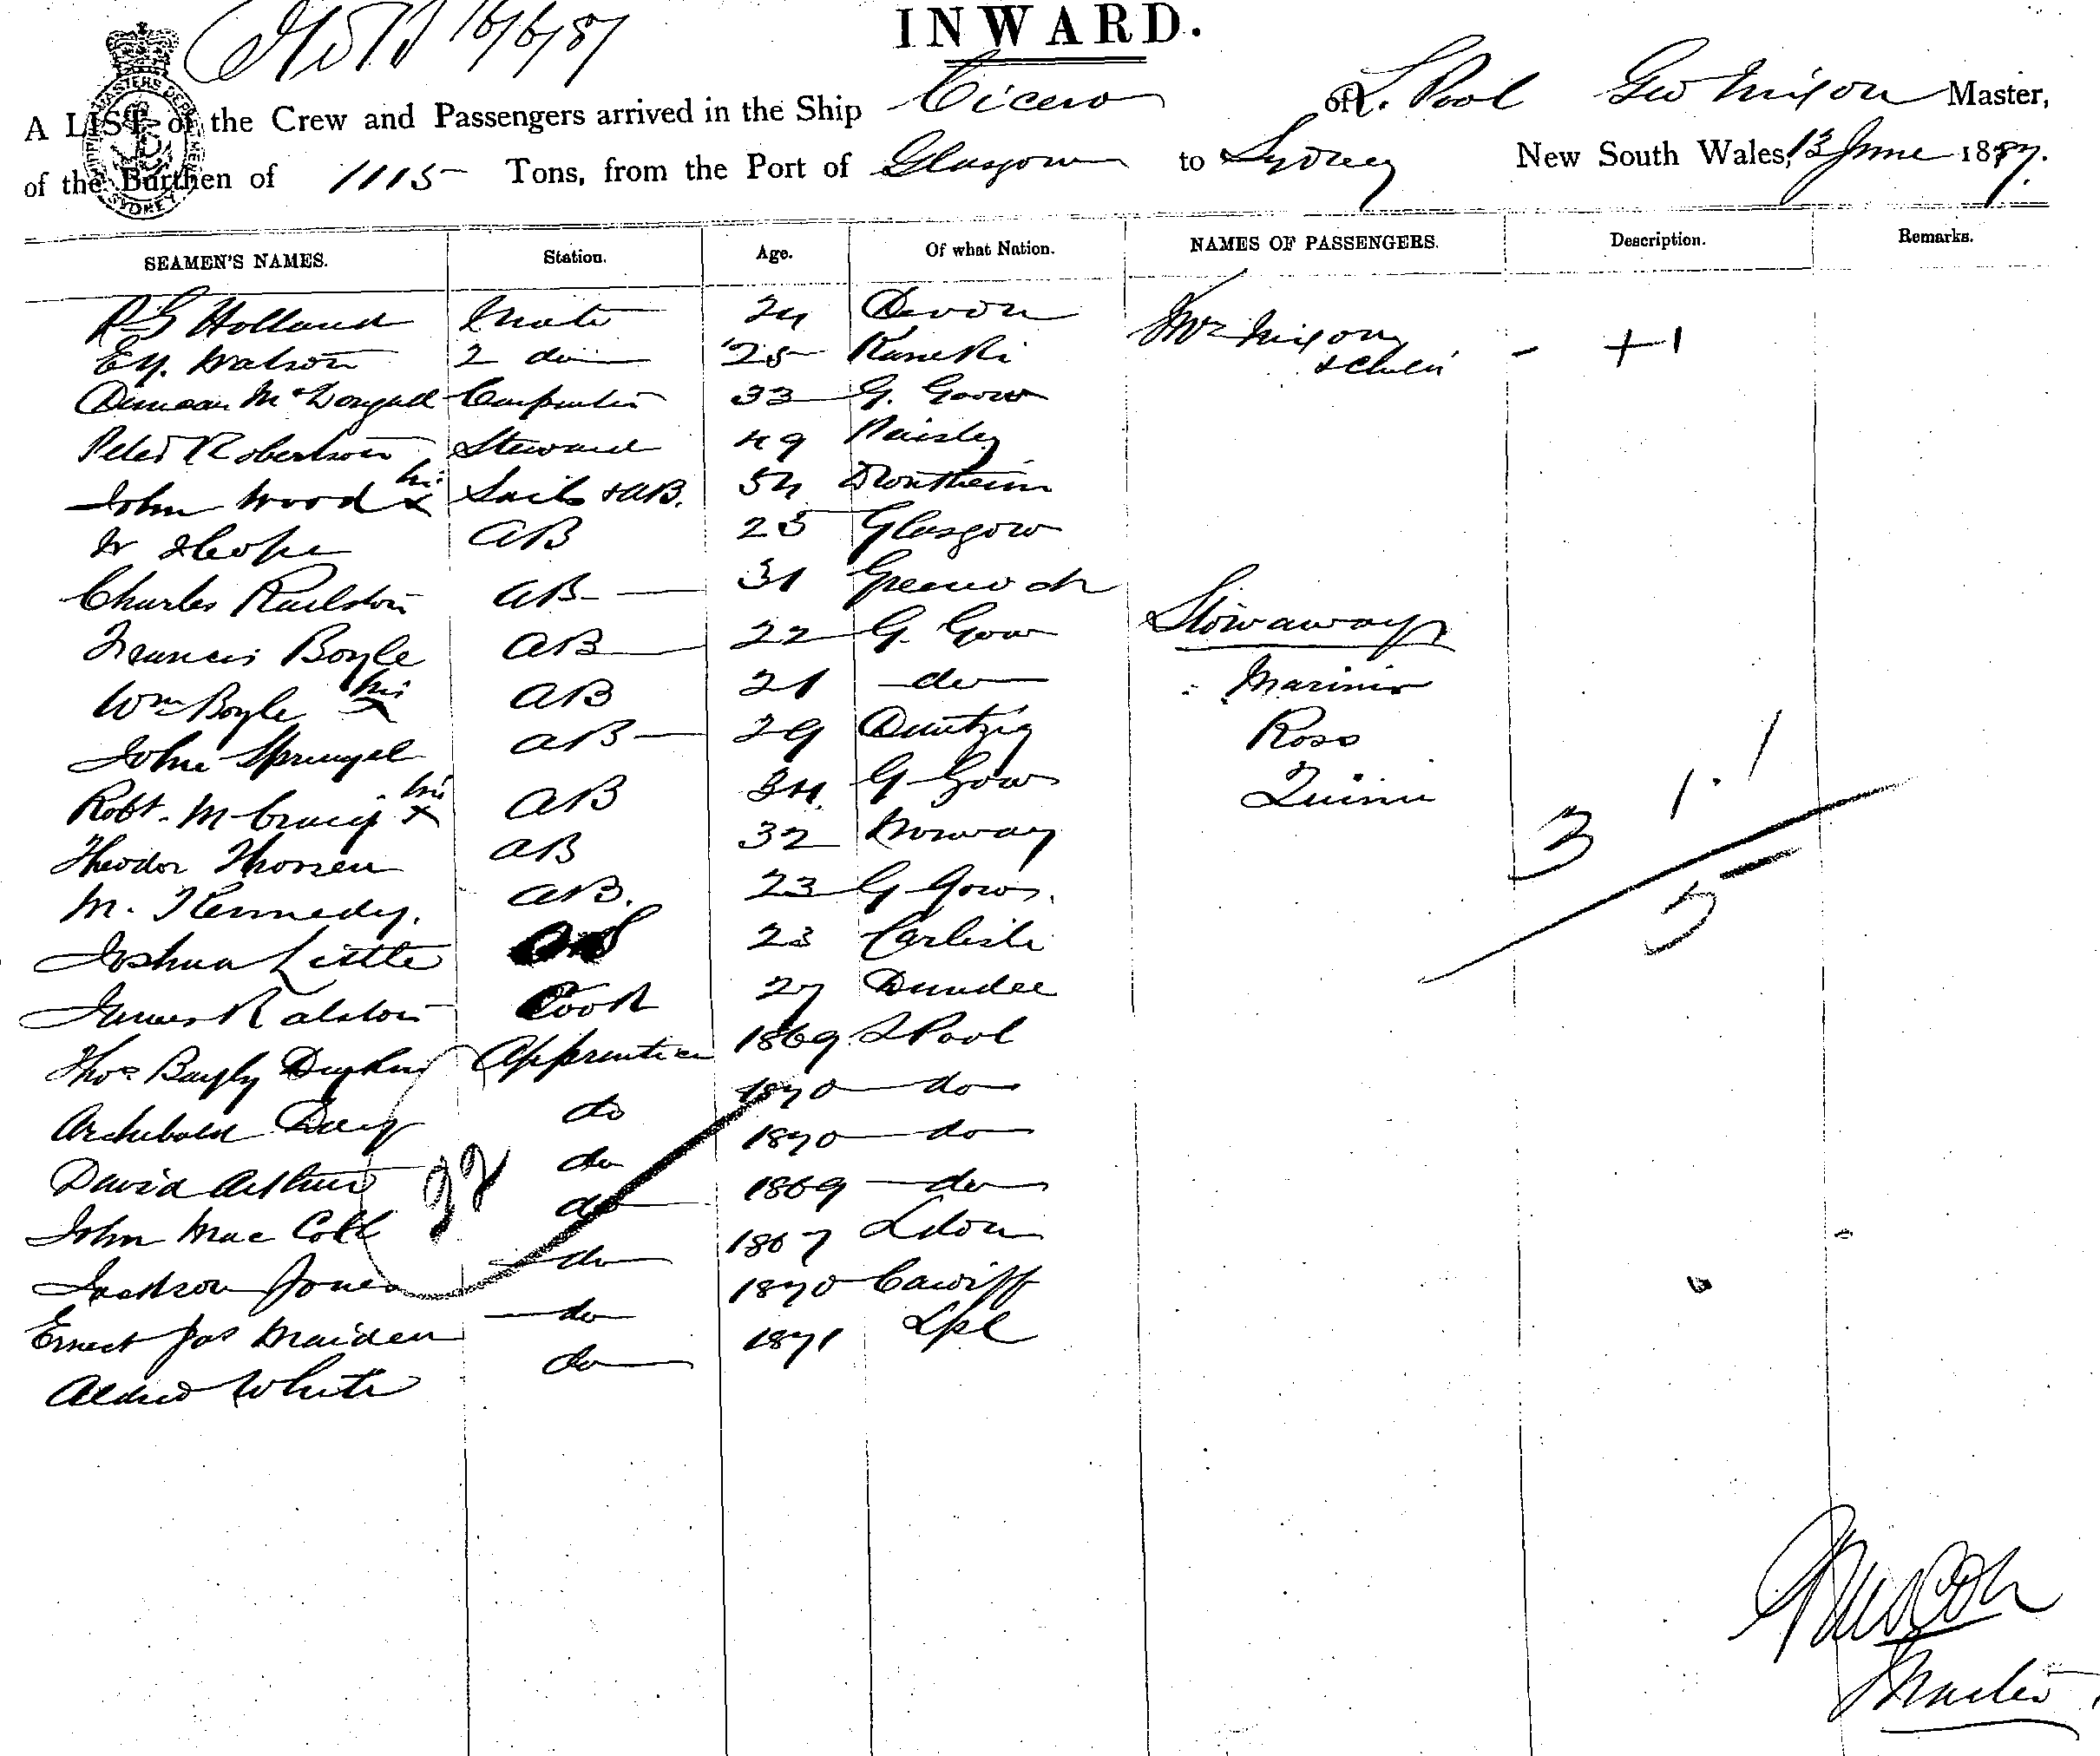 16/6/87
INWARD.
A LIST of the Crew and Passengers arrived in the Ship Cicero of L. Pool Geo Nixon Master,
of the Burthen of 1115 Tons, from the Port of Glasgow to Sydney New South Wales, 13 June 1887.
SHIPPING MASTERS DEPARTMENT SYDNEY
SEAMEN'S NAMES. Station. Age. Of what Nation. NAMES OF PASSENGERS. Description. Remarks.
R G Holland Mate 24 Devon Mrs Nixon
Watson 2 do 25 & Child - + 1
Duncan McDougall Carpenter 33 G. Gow
Peter Robertson Steward 49 Paisley
John Wood his x Sails & AB. 54 Drontheim
W AB 25 Glasgow
Charles Railston AB 31 Greenock
Francis Boyle AB 22 G. Gow Stowaways
Wm Boyle his x AB 21 do Mariner
John Sprungel AB 29 Dantzig Ross
Robt. McCraig his x AB 34 G Gow Quinn 3 1. 1
Theodor Thorsen AB 32 Norway
M. Kennedy. AB. 23 G Gow. 5
Joshua Little 23 Carlisle
James Ralston Cook 27 Dundee
Thos Bayly Apprentice 1869 L Pool
Archibald do 1870 do
David Arthur do 1870 do
22
John Mac Coll do 1869 do
Jackson Jones do 1867 Ldon
Ernest Jas Maiden do 1870 Cardiff
Aldred White do 1871 Lpl
G Nixon
Master